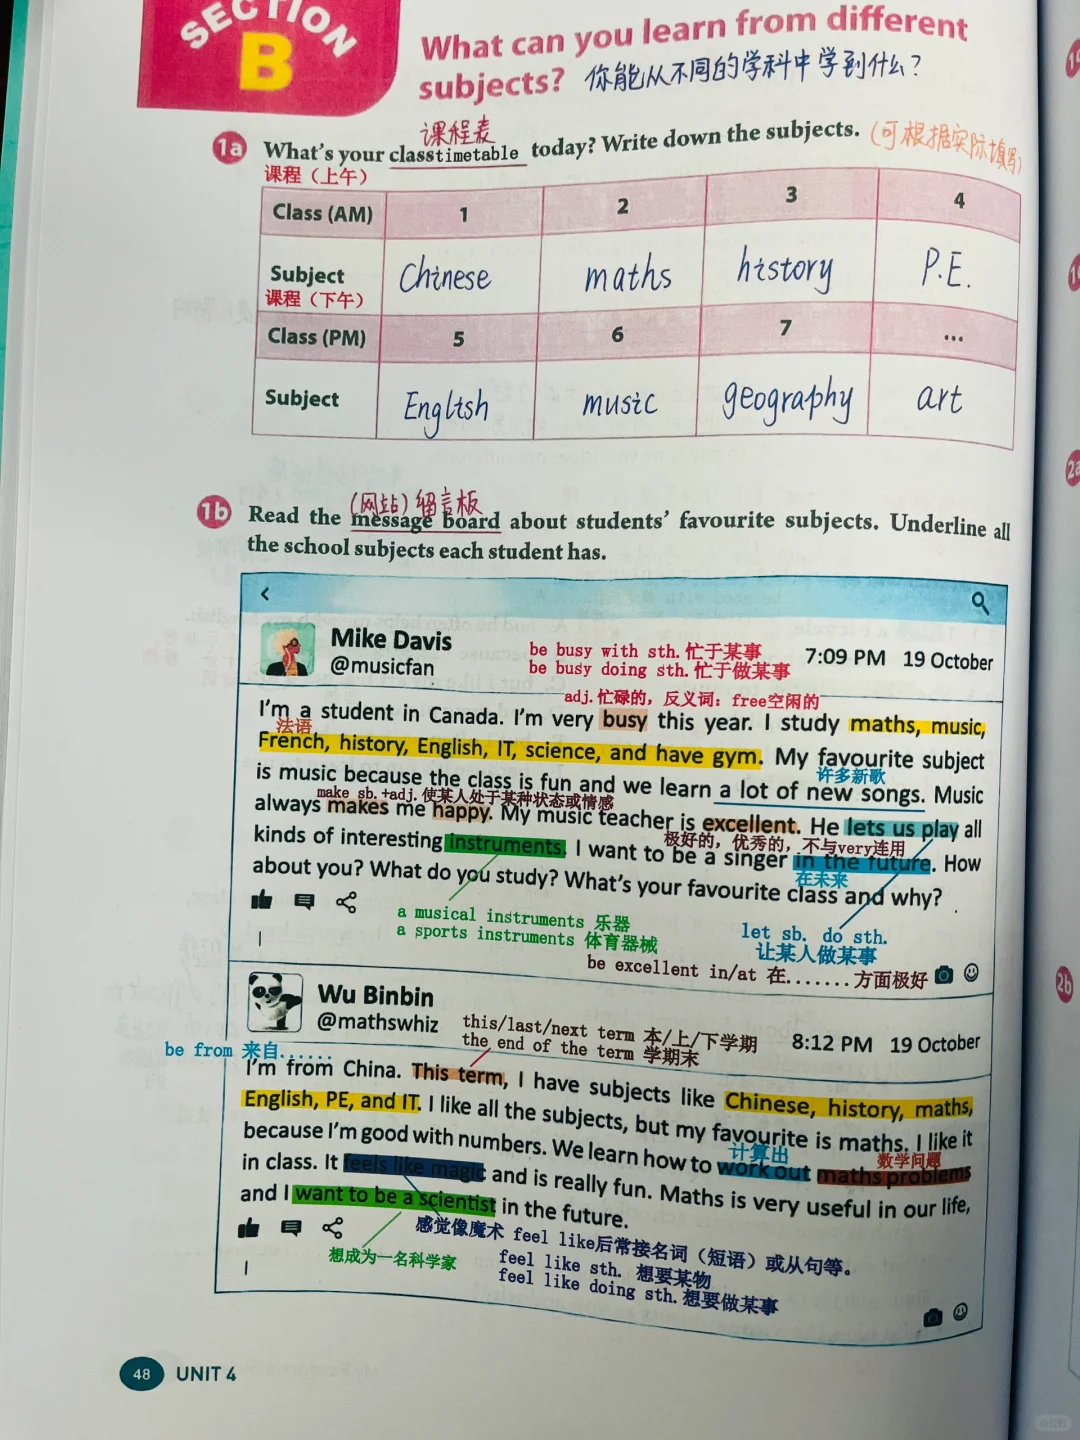 SECTION
B
What can you learn from different
subjects? 你能从不同的学科中学到什么?
课程表
1a What's your classtimetable today? Write down the subjects. (可根据实际填写)
课程（上午）
Class (AM) 1 2 3 4
Subject Chinese maths history P.E.
课程（下午）
Class (PM) 5 6 7 ...
Subject English music geography art
(网站) 留言板
1b Read the message board about students' favourite subjects. Underline all
the school subjects each student has.
Mike Davis
@musicfan
be busy with sth. 忙于某事
be busy doing sth. 忙于做某事
7:09 PM 19 October
adj. 忙碌的，反义词：free空闲的
I'm a student in Canada. I'm very busy this year. I study maths, music,
法语
French, history, English, IT, science, and have gym. My favourite subject
许多新歌
is music because the class is fun and we learn a lot of new songs. Music
make sb.+adj. 使某人处于某种状态或情感
always makes me happy. My music teacher is excellent. He lets us play all
极好的，优秀的，不与very连用
kinds of interesting instruments. I want to be a singer in the future. How
在未来
about you? What do you study? What's your favourite class and why?
a musical instruments 乐器
a sports instruments 体育器械
let sb. do sth.
让某人做某事
be excellent in/at 在.......方面极好
Wu Binbin
@mathswhiz
this/last/next term 本/上/下学期
the end of the term 学期末
8:12 PM 19 October
be from 来自......
I'm from China. This term, I have subjects like Chinese, history, maths,
English, PE, and IT. I like all the subjects, but my favourite is maths. I like it
计算出
数学问题
because I'm good with numbers. We learn how to work out maths problems
in class. It feels like magic and is really fun. Maths is very useful in our life,
and I want to be a scientist in the future.
感觉像魔术 feel like后常接名词（短语）或从句等。
想成为一名科学家
feel like sth. 想要某物
feel like doing sth.想要做某事
48 UNIT 4
小红书